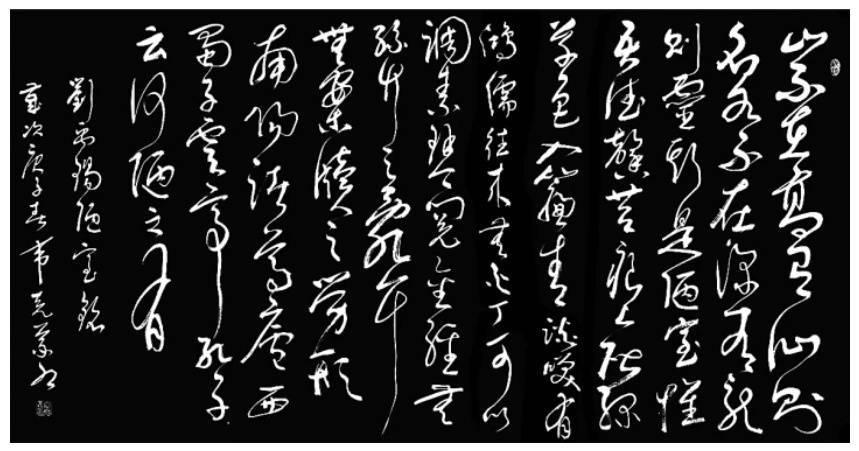 山不在高有仙則
名水不在深有龍
則靈斯是陋室惟
吾德馨苔痕上階綠
草色入簾青談笑有
鴻儒往來無白丁可以
調素琴閱金經無
絲竹之亂耳
無案牘之勞形
南陽諸葛廬西
蜀子雲亭孔子
云何陋之有
劉禹錫陋室銘
歲次庚子春韋克